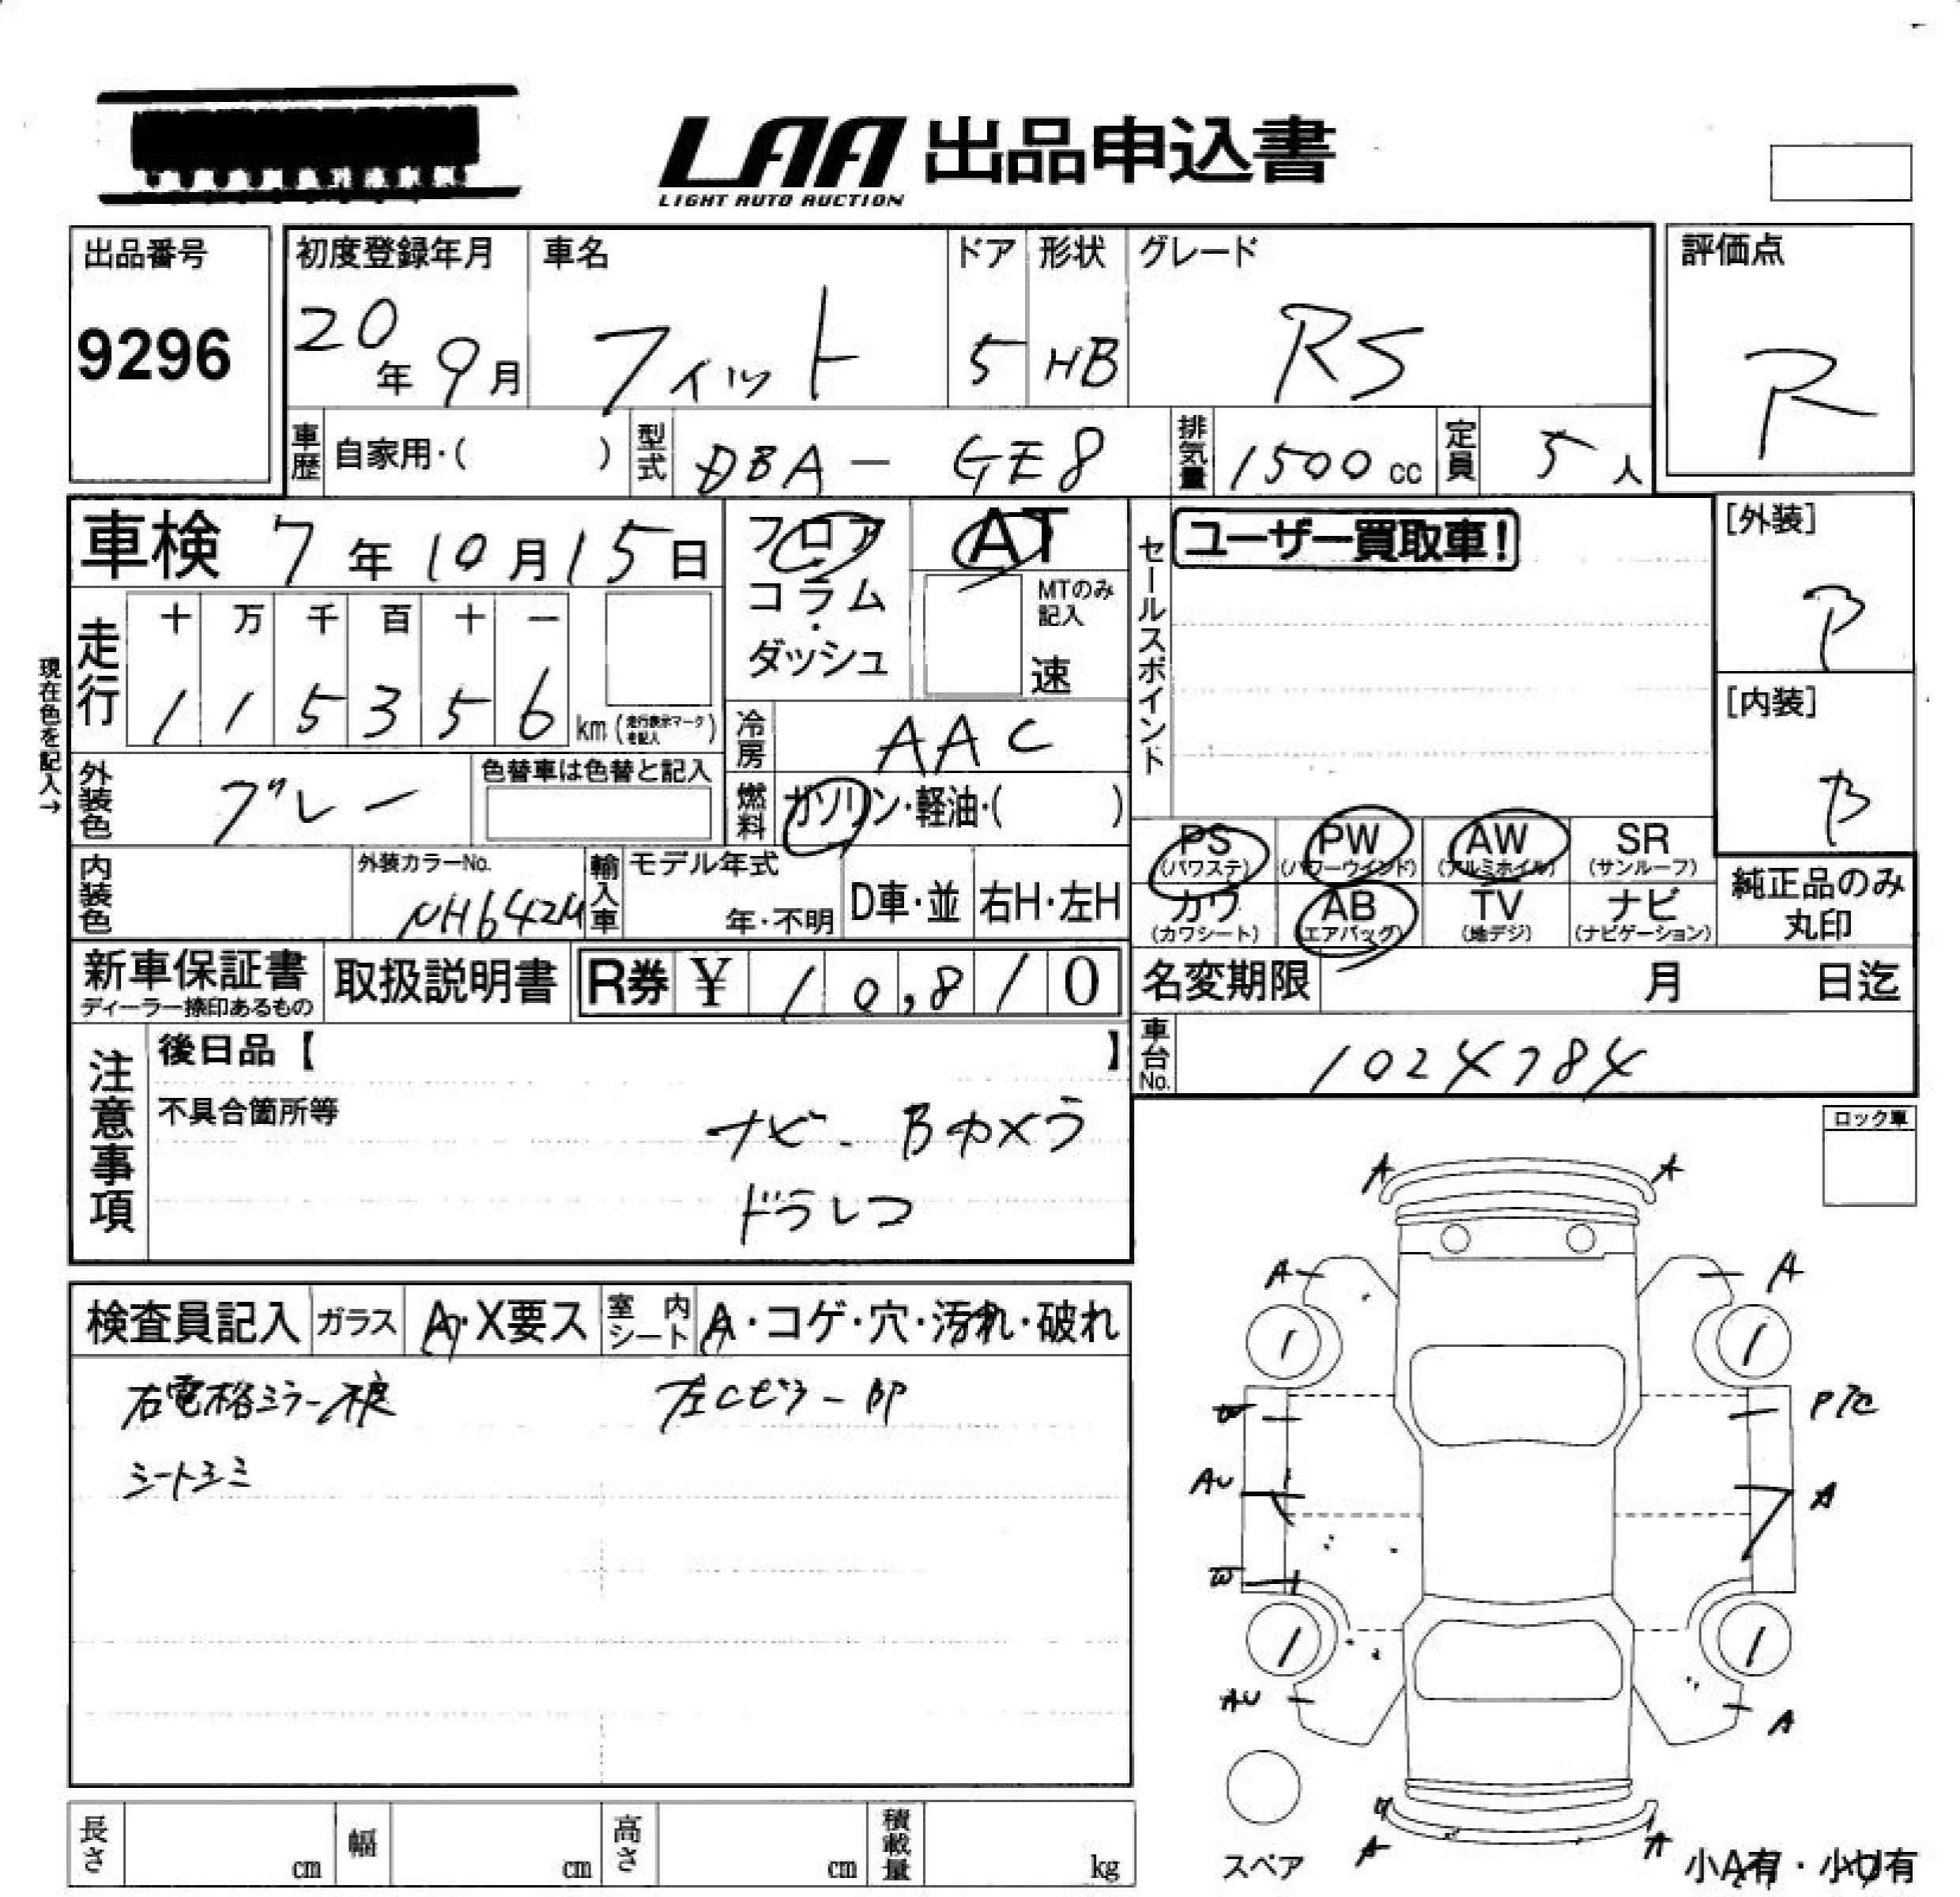 LAA 出品申込書
LIGHT AUTO AUCTION
出品番号
9296
初度登録年月
20年9月
車名
フィット
ドア
5
形状
HB
グレード
RS
評価点
R
車歴 自家用・( )
型式 DBA-GE8
排気量 1500cc
定員 5人
車検 7年10月15日
フロア・コラム・ダッシュ
AT
MTのみ記入
速
セールスポイント
ユーザー買取車!
[外装]
[内装]
B
現在色を記入→
走行
十 万 千 百 十 一
1 1 5 3 5 6 km (走行表示マークを記入)
冷房 AAC
外装色 グレー
色替車は色替と記入
燃料 ガソリン・軽油・( )
内装色
外装カラーNo.
NH642M
輸入車
モデル年式
年・不明
D車・並
右H・左H
PS (パワステ)
PW (パワーウインド)
AW (アルミホイル)
SR (サンルーフ)
カワ (カワシート)
AB (エアバッグ)
TV (地デジ)
ナビ (ナビゲーション)
純正品のみ丸印
新車保証書
ディーラー捺印あるもの
取扱説明書
R券 ¥ 10,810
名変期限 月 日迄
車台No. 1024784
注意事項
後日品【 】
不具合箇所等
ナビ- Bカメラ
ドラレコ
ロック車
検査員記入
ガラス A・X要ス
室内シート A・コゲ・穴・汚れ・破れ
右電格ミラー不良
左Cピラー
シートシミ
A A
A A
1 1
W
AU A
W
1 1
AU A
A A
スペア
小A有・小U有
長さ cm
幅 cm
高さ cm
積載量 kg